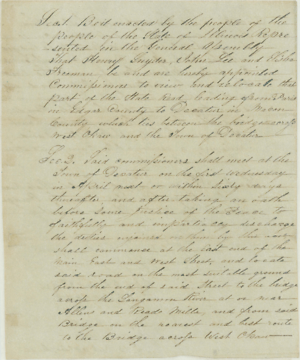 Sec 1. Be it enacted by the people of the
people of the State of Illinois Repre
sented in the General Assembly
That Henry Snyder, John Lee and
Freeman be and are hereby appointed
Commissioners to view and relocate this
part of the State Road leading from Paris
in Edgar County to Decatur in Macon
County which lies between the
West Okaw and the Town of Decatur
Sec 2. Said commissioners shall meet at the
Town of Decatur on the first Wednesday
in April next or within Sixty days
thereafter and after taking an oath
before some Justice of the Peace to
faithfully and impartially discharge
the duties required in this act
shall commence at the East end of the
Main East and West Street and locate
said road on the most suitable ground
from the end of said Street to the bridge
across the Sangamon River at or near
Allens and Mills and from said
Bridge on the nearest and best route
to the Bridge across West Okaw